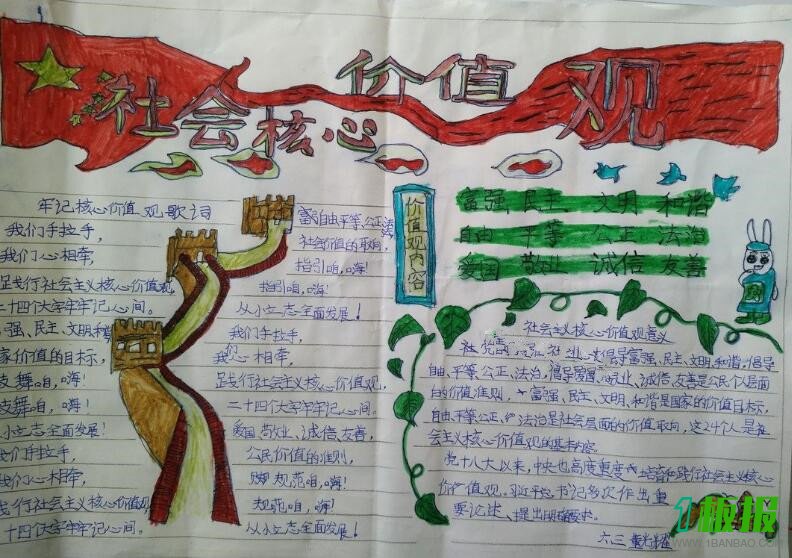 社会核心
价值
观
牢记核心价值观歌词
我们手拉手,
我们心相牵,
足践行社会主义核心价值观,
二十四个大字牢牢记心间。
强、民主、文明和
家价值的目标,
鼓舞咱,嗨!
鼓舞咱,嗨!
小立志全面发展!
我们手拉手,
我们心相牵,
践行社会主义核心价值观
二十四个大字牢牢记心间。
自由、平等、公正、法
社会价值的取向,
指引咱,嗨!
指引咱,嗨!
从小立志全面发展!
我们手拉手,
我们心相牵,
足践行社会主义核心价值观,
二十四个大字牢牢记心间。
爱国、敬业、诚信、友善,
公民价值的准则,
规范咱,嗨!
规范咱,嗨!
从小立志全面发展!
价值观内容
富强 民主 文明 和谐
自由 平等 公正 法治
爱国 敬业 诚信 友善
社会主义核心价值观意义
倡导富强、民主、文明、和谐,倡导
自由、平等、公正、法治,倡导爱国、敬业、诚信、友善是公民个人层面
的价值准则,富强、民主、文明、和谐是国家的价值目标,
自由、平等、公正、法治是社会层面的价值取向,这24个人是社
会主义核心价值观的基本内容。
党十八大以来,中央也高度重度培育和践行社会主义核心
价值观。习近平总书记多次作出重
要论述、提出明确要求。
六三
1板报
WWW.1BANBAO.COM